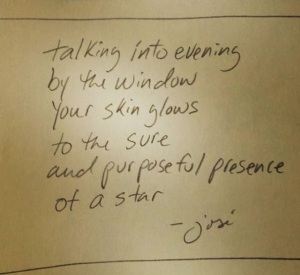 talking into evening
by the window
your skin glows
to the sure
and purposeful presence
of a star
- josé